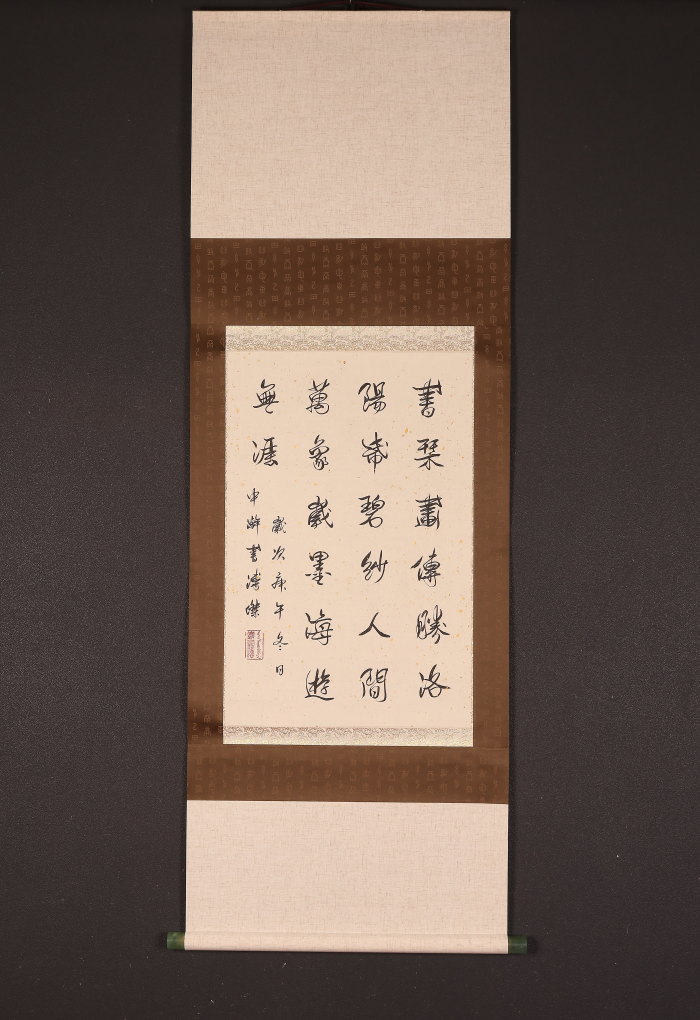 書琹畫傳勝洛
陽碧紗人間
萬象歲墨海遊
無涯
歲次庚午冬日
書溥傑